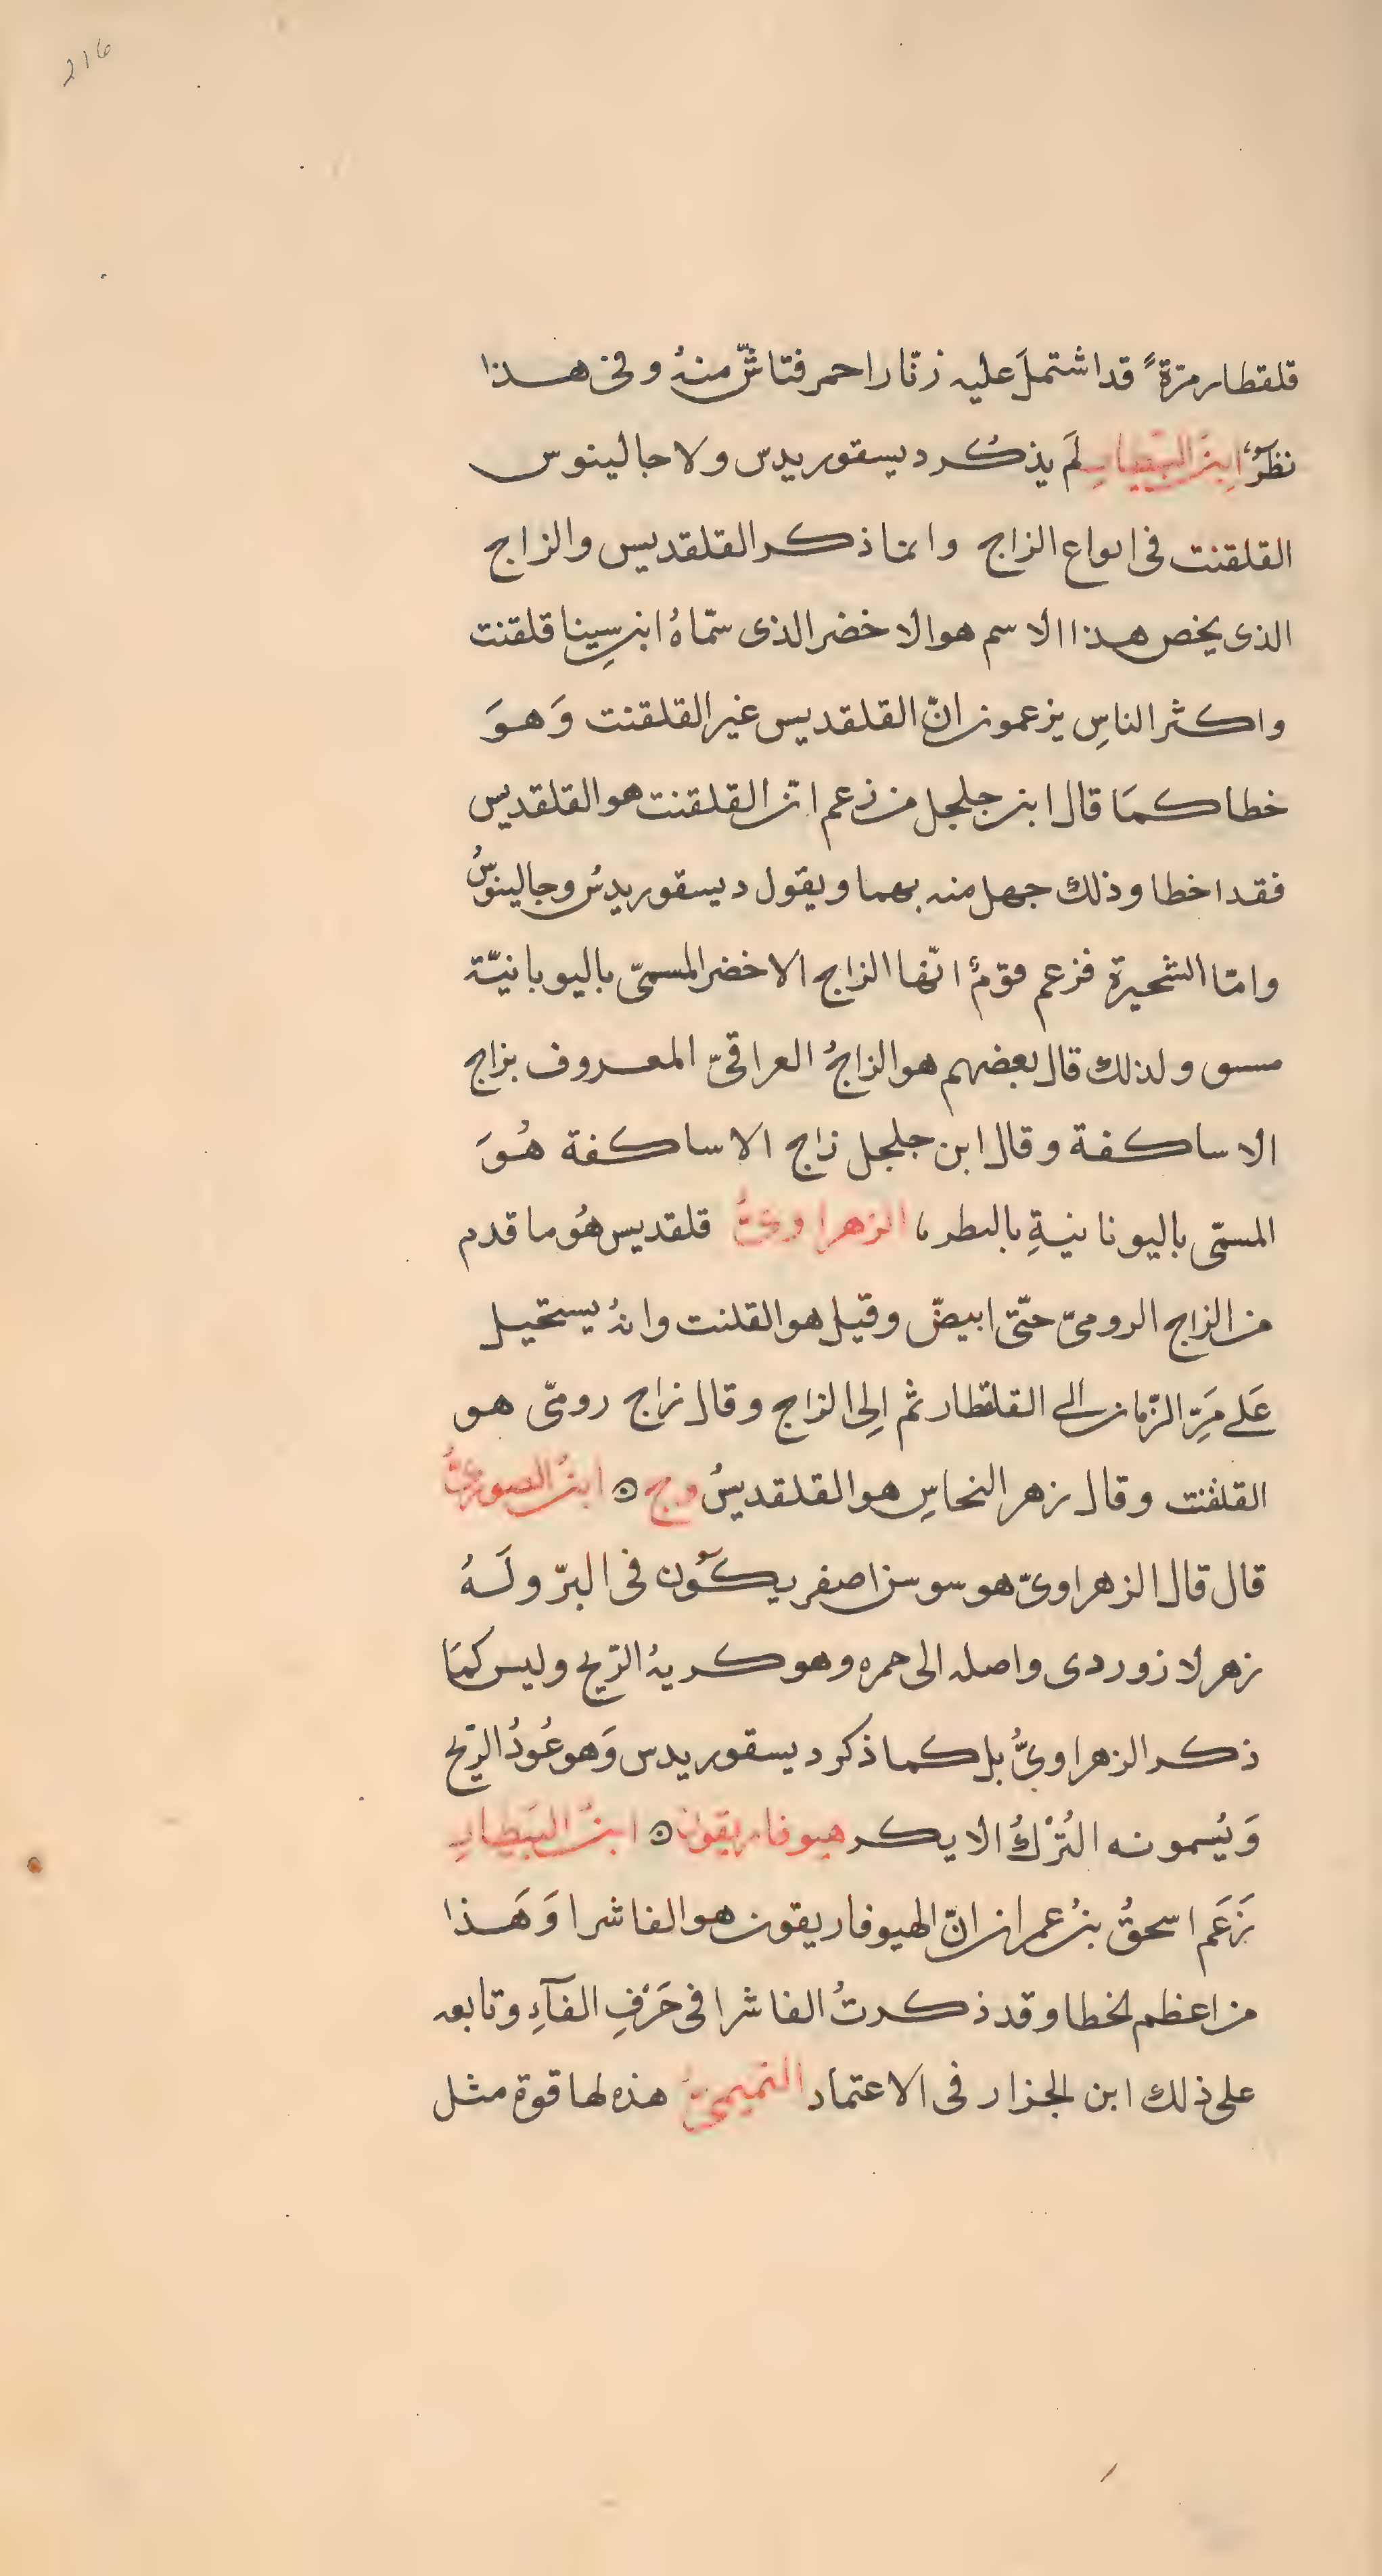 216
قلقطار مرّةً قد اشتملَ عليه زنّار احمر فتاشّ منهُ وفى هذا
نظرٌ ابنُ البَيطارِ لَم يذكُر ديسقوريدس ولا جالينوس
القلقنت فى انواع الزاج وانما ذكر القلقديس والزاج
الذى يخص هذا الاسم هو الاخضر الذى سمّاهُ ابن سِينا قلقنت
واكثر الناسِ يزعمون انّ القلقديس غير القلقنت وَهوَ
خطا كمَا قال ابن جلجل من زعم انّ القلقنت هو القلقديس
فقد اخطا وذلك جهل منه بهما ويقول ديسقوريدسُ وجالينوسُ
وامّا الشحيرة فزعم قومٌ انّها الزاج الاخضر المسمىّ باليوبانيّة
مسىو ولذلك قال بعضهم هو الزاجُ العراقىّ المعروف بزاج
الاساكفة وقال ابن جلجل زاج الاساكفة هُوَ
المسمّى باليونانيةِ بالىطريا الزهراوىُّ قلقديس هُو ما قدم
من الزاج الرومىّ حتّى ابيضّ وقيل هو القلنت وانهُ يستحيل
عَلى مَرِّ الزّمان الى القلقطار ثم اِلى الزاج وقال زاج رومىّ هو
القلقنت وقال زهر النحاسِ هو القلقديسُ وج ۞ ابنُ الصورىُّ
قال قال الزهراوىّ هو سوسن اصفر يكُون فى البرّ ولَهُ
زهر لازوردى واصله الى حمره وهو كريهُ الرّيح وليس كمَا
ذكر الزهراوىُّ بل كما ذكر ديسقوريدس وَهو عُودُ الرّيح
وَيُسمونه التُرْكُ الايكر هيوفاريقون ۞ ابنُ البَيطارِ
زَعَم اسحقُ بنُ عمران انّ الهيوفاريقون هو الفاشرا وَهَذا
من اعظم الخطا وقد ذكرتُ الفاشرا فى حَرْفِ الفآءِ وتابعه
على ذلك ابن الجزار فى الاعتماد التميمىُّ هذه لها قوة مثل